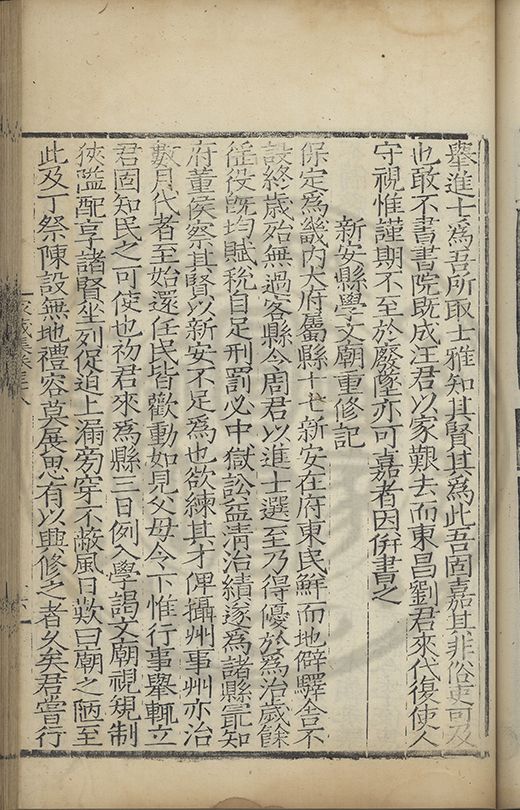 舉進士為吾所取士雅知其賢其為此吾固嘉其非俗吏可及
也敢不書書院旣成汪君以家艱去而東昌劉君來代復使人
守視惟謹期不至於廢墜亦可嘉者因併書之
新安縣學文廟重修記
保定為畿內大府屬縣十七新安在府東民鮮而地僻驛舎不
設終歲殆無過客縣令周君以進士選至乃得優於為治歲餘
徭役旣均賦稅自足刑罰必中獄訟益清治績遂為諸縣最知
府董侯察其賢以新安不足為也欲練其才俾攝州事州亦治
數月代者至始還任民皆歡動如見父母令下惟行事舉輒立
君固知民之可使也初君來為縣三日例入學謁文廟視規制
狹隘配享諸賢坐列促迫上漏旁穿不蔽風日歎曰廟之陋至
此及丁祭陳設無地禮容莫展思有以興修之者久矣君嘗行